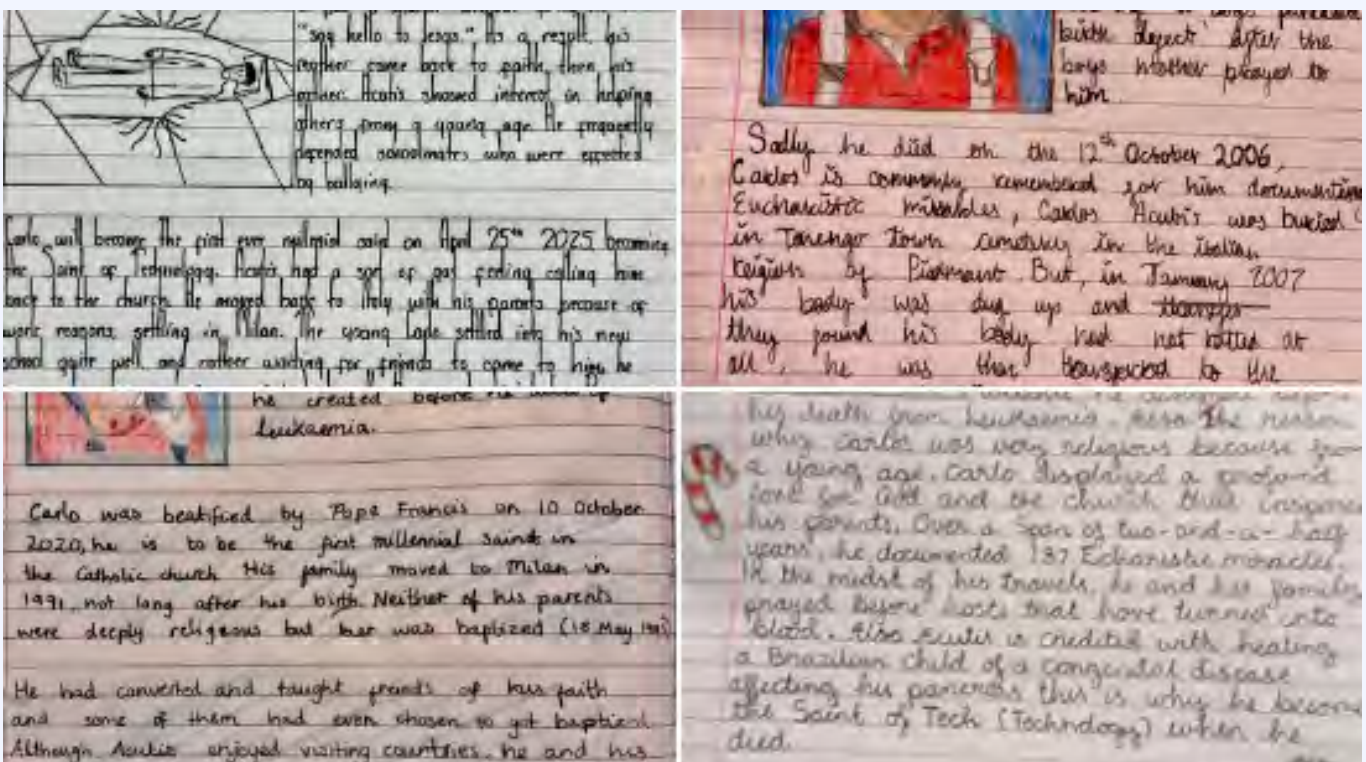 "say hello to Jesus." As a result, his
mother came back to faith, then his
father. Acutis showed interest in helping
others from a young age. He frequently
defended schoolmates who were effected
by bullying.
Carlo will become the first ever millennial saint on April 25th 2025 becoming
the Saint of Technology. Acutis had a sort of gut feeling calling him
back to the church. He moved back to Italy with his parents because of
work reasons, settling in Milan. The young Carlo settled into his new
school quite well and rather waiting for friends to come to him, he
birth defect after the
boys mother prayed to
him.
Sadly he died on the 12th October 2006,
Carlos is commonly remembered for him documenting
Eucharistic, Carlos Acutis was buried
in town in the italian
by. But, in January 2007
his body was dug up and
they found his body had not rotted at
all, he was then to the
he created before he died of
leukaemia.
Carlo was beatified by Pope Francis on 10 October
2020, he is to be the first millennial saint in
the Catholic church His family moved to Milan in
1991, not long after his birth. Neither of his parents
were deeply religeous but was baptized (18 May 1991)
He had converted and taught friends of his faith
and some of them had even chosen to get baptized.
Although Acutis enjoyed visiting countries, he and his
his death from leukaemia. Also The reason
why Carlos was very religious because from
a young age. Carlo displayed a profound
love for God and the church that inspired
his parents. Over a span of two-and-a-half
years, he documented 137 miracles.
In the midst of his travels, he and his family
prayed before hosts that have turned into
blood. Also Acutis is credited with healing
a Brazilian child of a congenital disease
affecting his pancreas this is why he become
the Saint of Tech (Technology) when he
died.